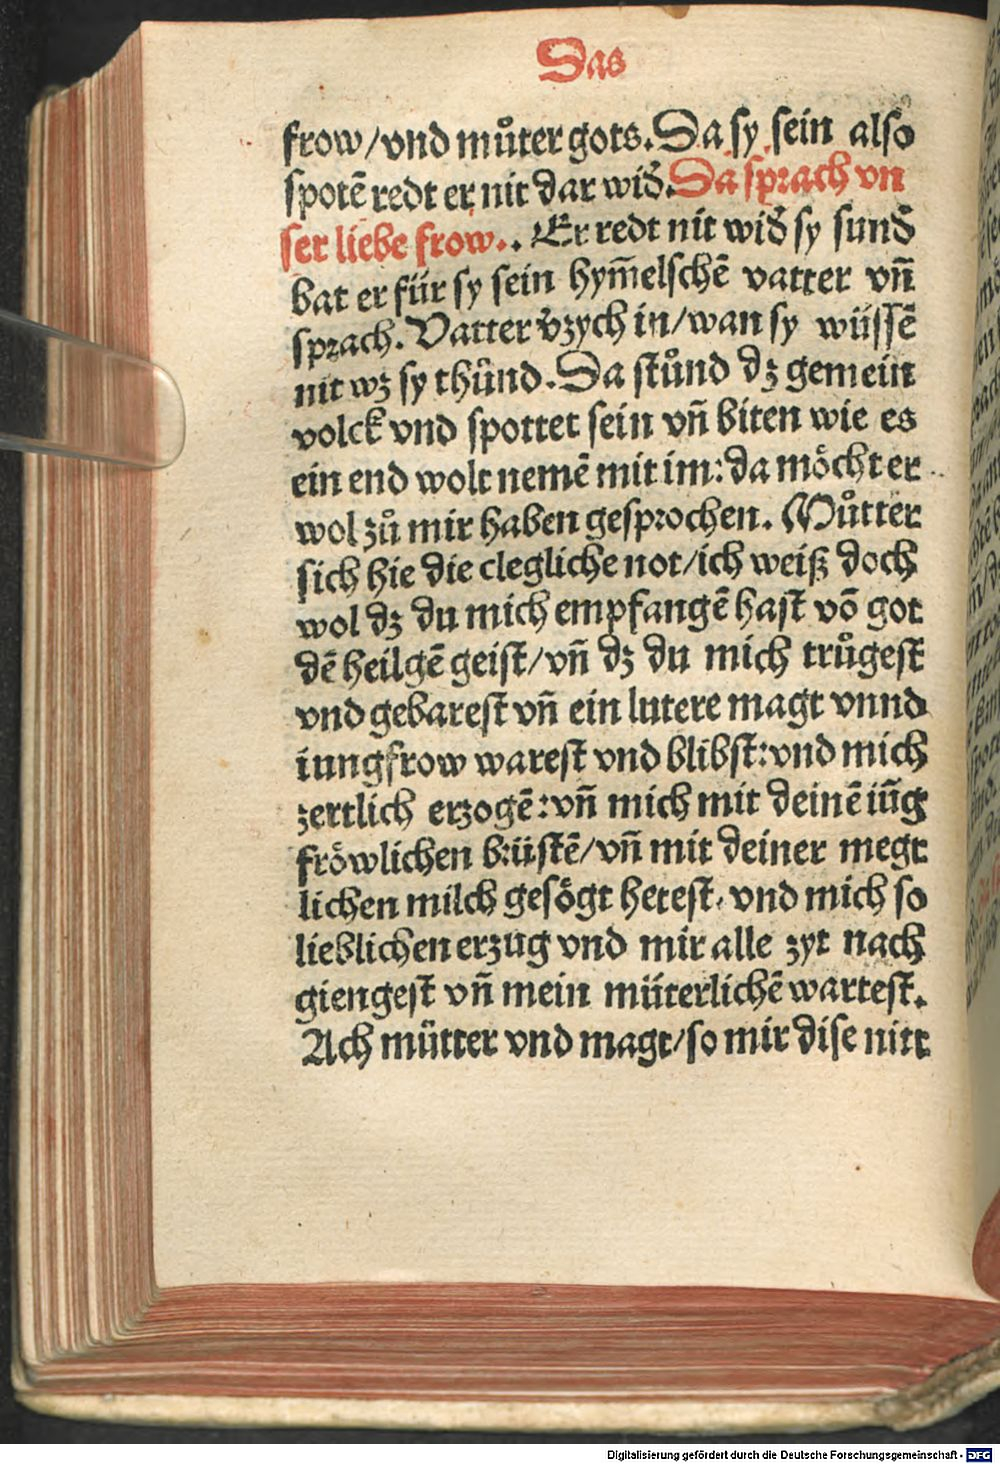 Das
frow/vnd můter gots. Da sy sein also
spotē redt er nit dar wid̄. Da sprach vn
ser liebe frow. . Er redt nit wid̄ sy sund̄
bat er für sy sein hym̄elschē vatter vn̄
sprach. Vatter v̄zych in/wan sy wüssē
nit wz sy thůnd. Da stůnd dz gemein
volck vnd spottet sein vn̄ biten wie es
ein end wolt nemē mit im: da möcht er
wol zů mir haben gesprochen. Můtter
sich hie die clegliche not/ich weiß doch
wol dz du mich empfangē hast vō got
dē heilgē geist/vn̄ dz du mich trůgest
vnd gebarest vn̄ ein lutere magt vnnd
iungfrow warest vnd blibst: vnd mich
zertlich erzogē: vn̄ mich mit deinē iūg
fröwlichen brüstē/vn̄ mit deiner megt
lichen milch gesögt hetest. vnd mich so
lieblichen erzug vnd mir alle zyt nach
giengest vn̄ mein müterlichē wartest.
Ach mütter vnd magt/so mir dise nitt
Digitalisierung gefördert durch die Deutsche Forschungsgemeinschaft - DFG